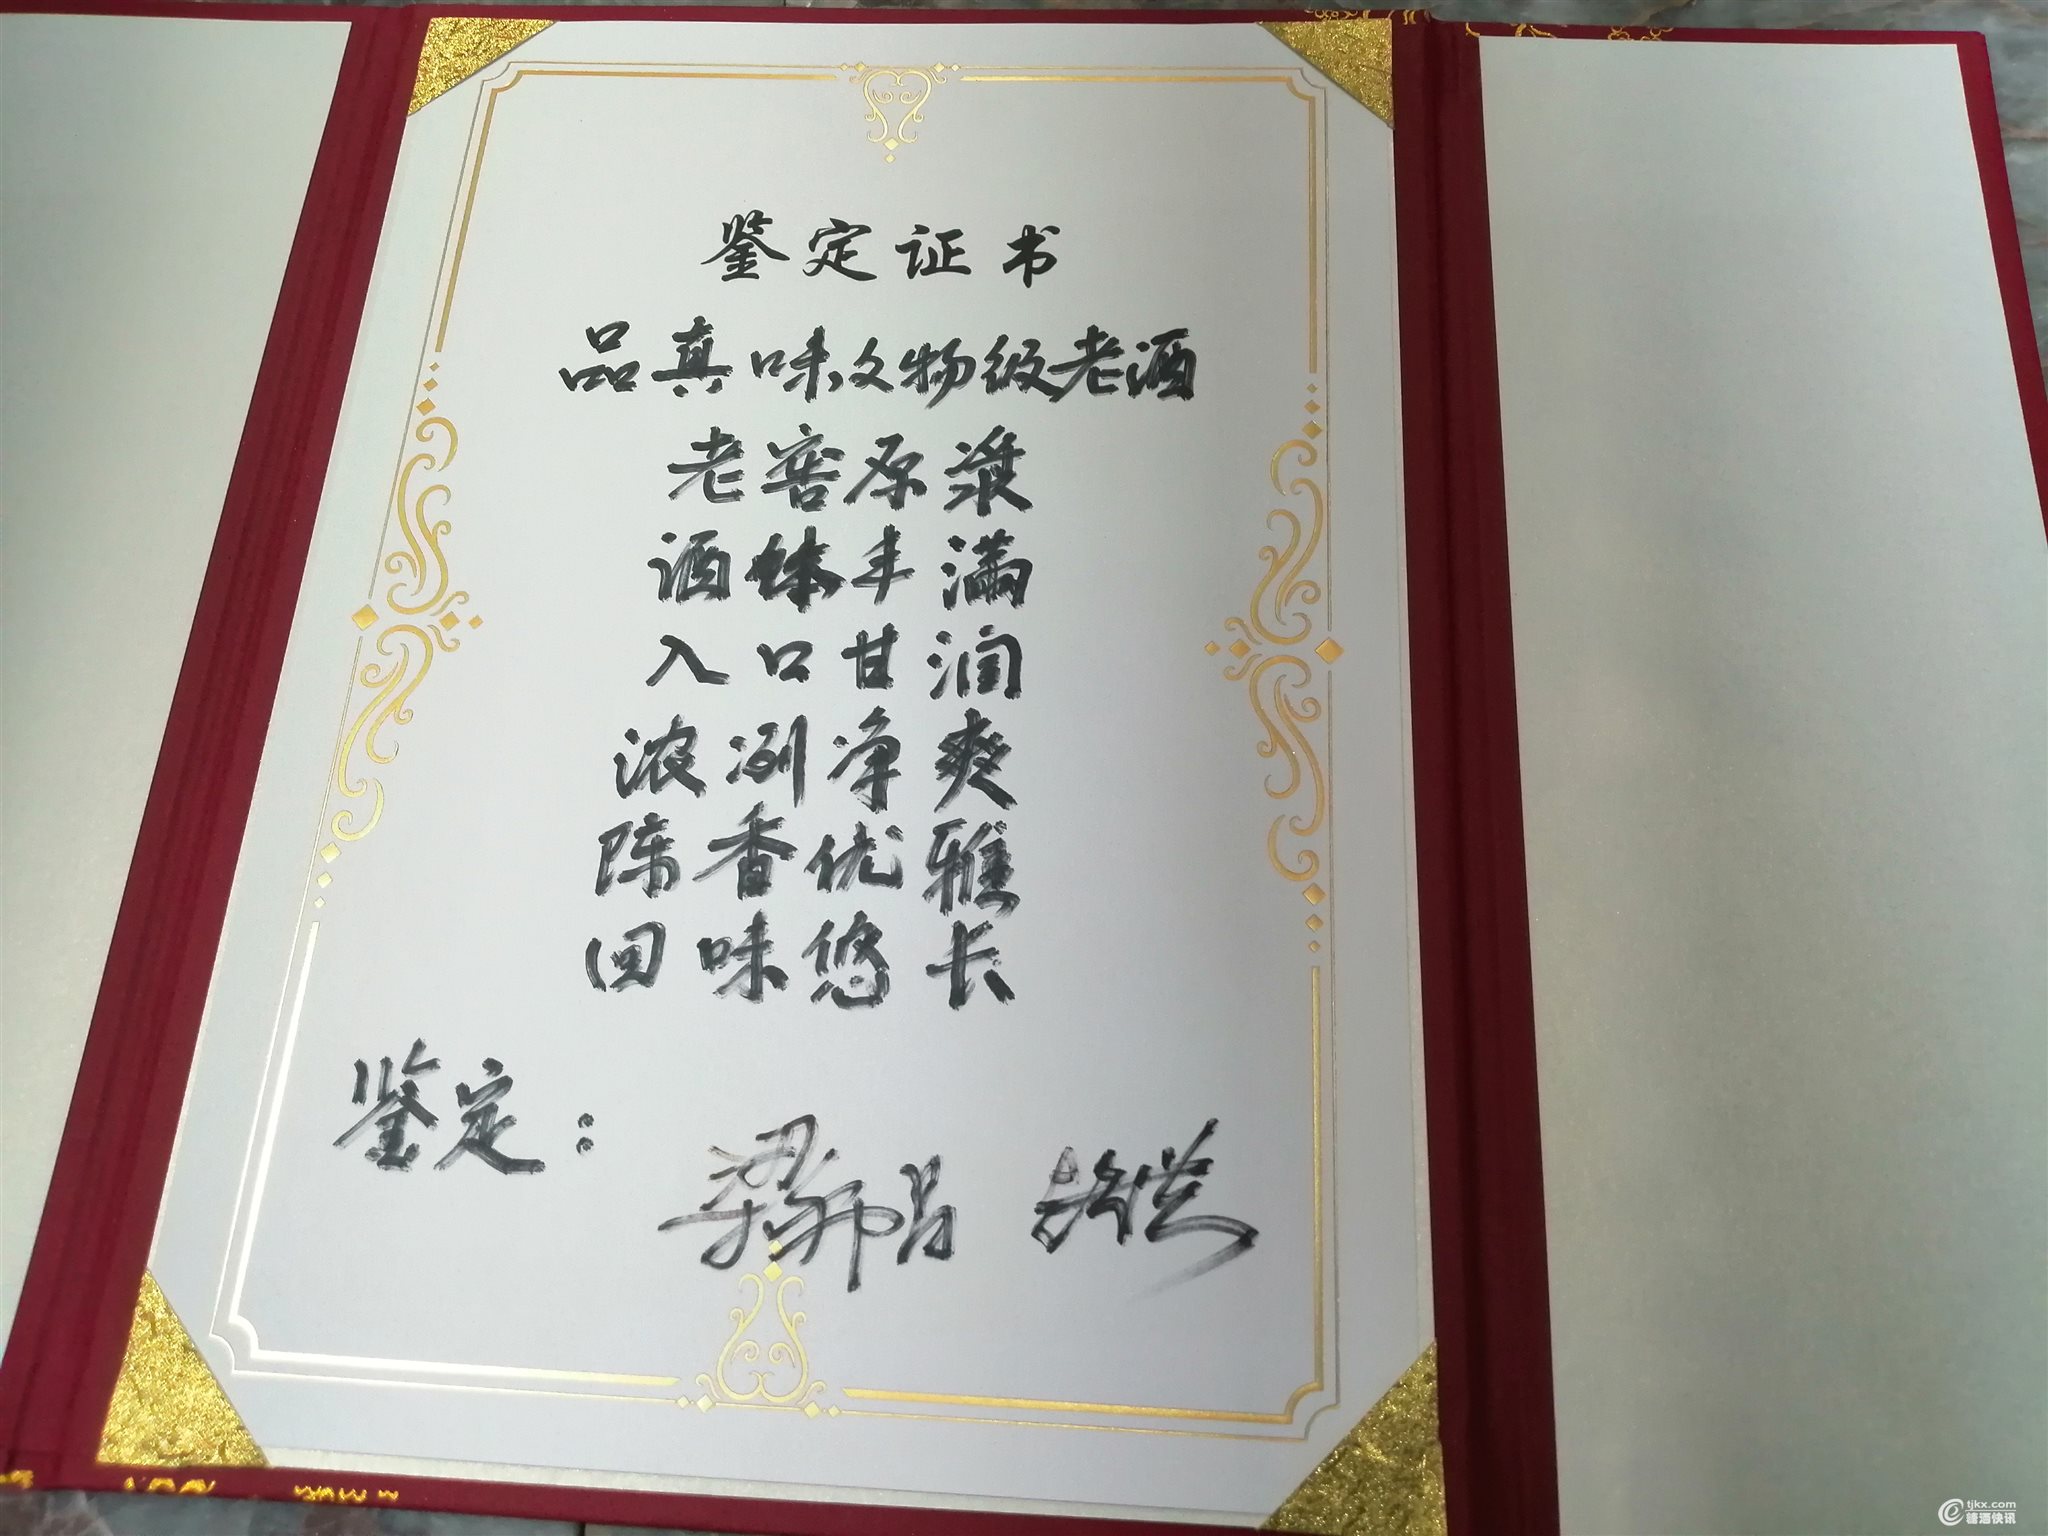 鉴定证书
品真味文物级老酒
老窖原浆
酒体丰满
入口甘润
浓冽净爽
陈香优雅
回味悠长
鉴定：
tjkx.com
糖酒快讯